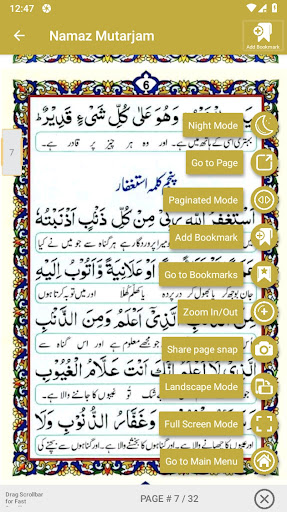 12:47
Namaz Mutarjam
Add Bookmark
6
وَهُوَ عَلٰى كُلِّ شَىْءٍ قَدِيْرٌ
بہتری اسی کے ہاتھ میں ہے۔ اور وہ ہر چیز پر قادر ہے۔
Night Mode
Go to Page
7
پنجم کلمہ استغفار
Paginated Mode
اَسْتَغْفِرُ اللّٰهَ رَبِّىْ مِنْ كُلِّ ذَنْۢبٍ اَذْنَبْتُهٗ
Add Bookmark
میرا پروردگار ہے ہر گناہ سے جو میں نے کیا
اَوْ عَلَانِيَةً وَّاَتُوْبُ اِلَيْهِ
Go to Bookmarks
جان بوجھ کر یا بھول کر درپردہ یا کھلم کھلا اور میں توبہ کرتا ہوں
Zoom In/Out
الَّذِىْٓ اَعْلَمُ وَمِنَ الذَّنْۢبِ
اس گناہ سے جو مجھے معلوم ہے اور اس گناہ سے
Share page snap
اَعْلَمُ اِنَّكَ اَنْتَ عَلَّامُ الْغُيُوْبِ
Landscape Mode
تو غیبوں کا جاننے والا ہے۔
وَغَفَّارُ الذُّنُوْبِ وَلَا
Full Screen Mode
اور عیبوں کا چھپانے والا ہے۔ اور گناہوں کا بخشنے والا ہے۔ اور گناہوں سے بچنے کی
Go to Main Menu
Drag Scrollbar
for Fast
PAGE # 7 / 32